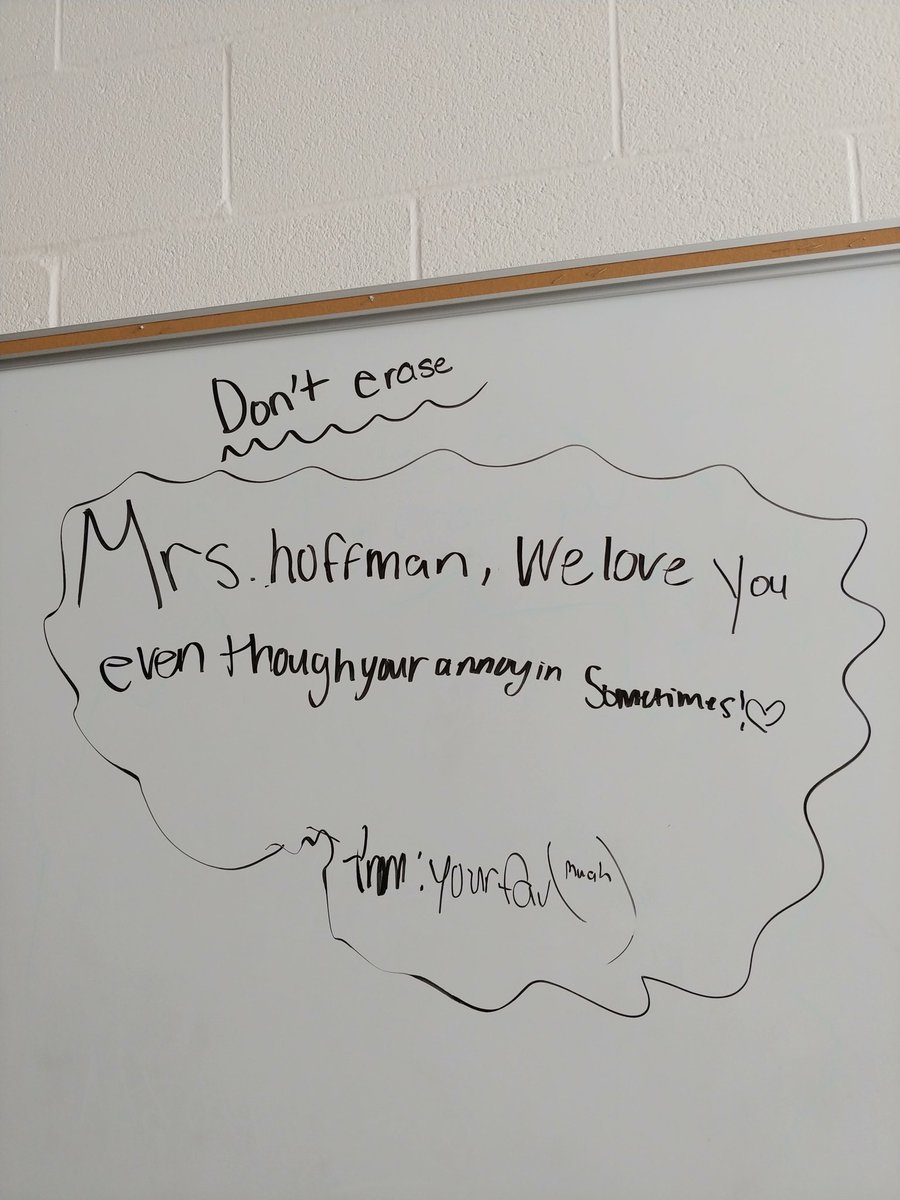 Don't erase
Mrs. hoffman, We love you
even though your annoyin Sometimes!♡
from: your fav (muah)